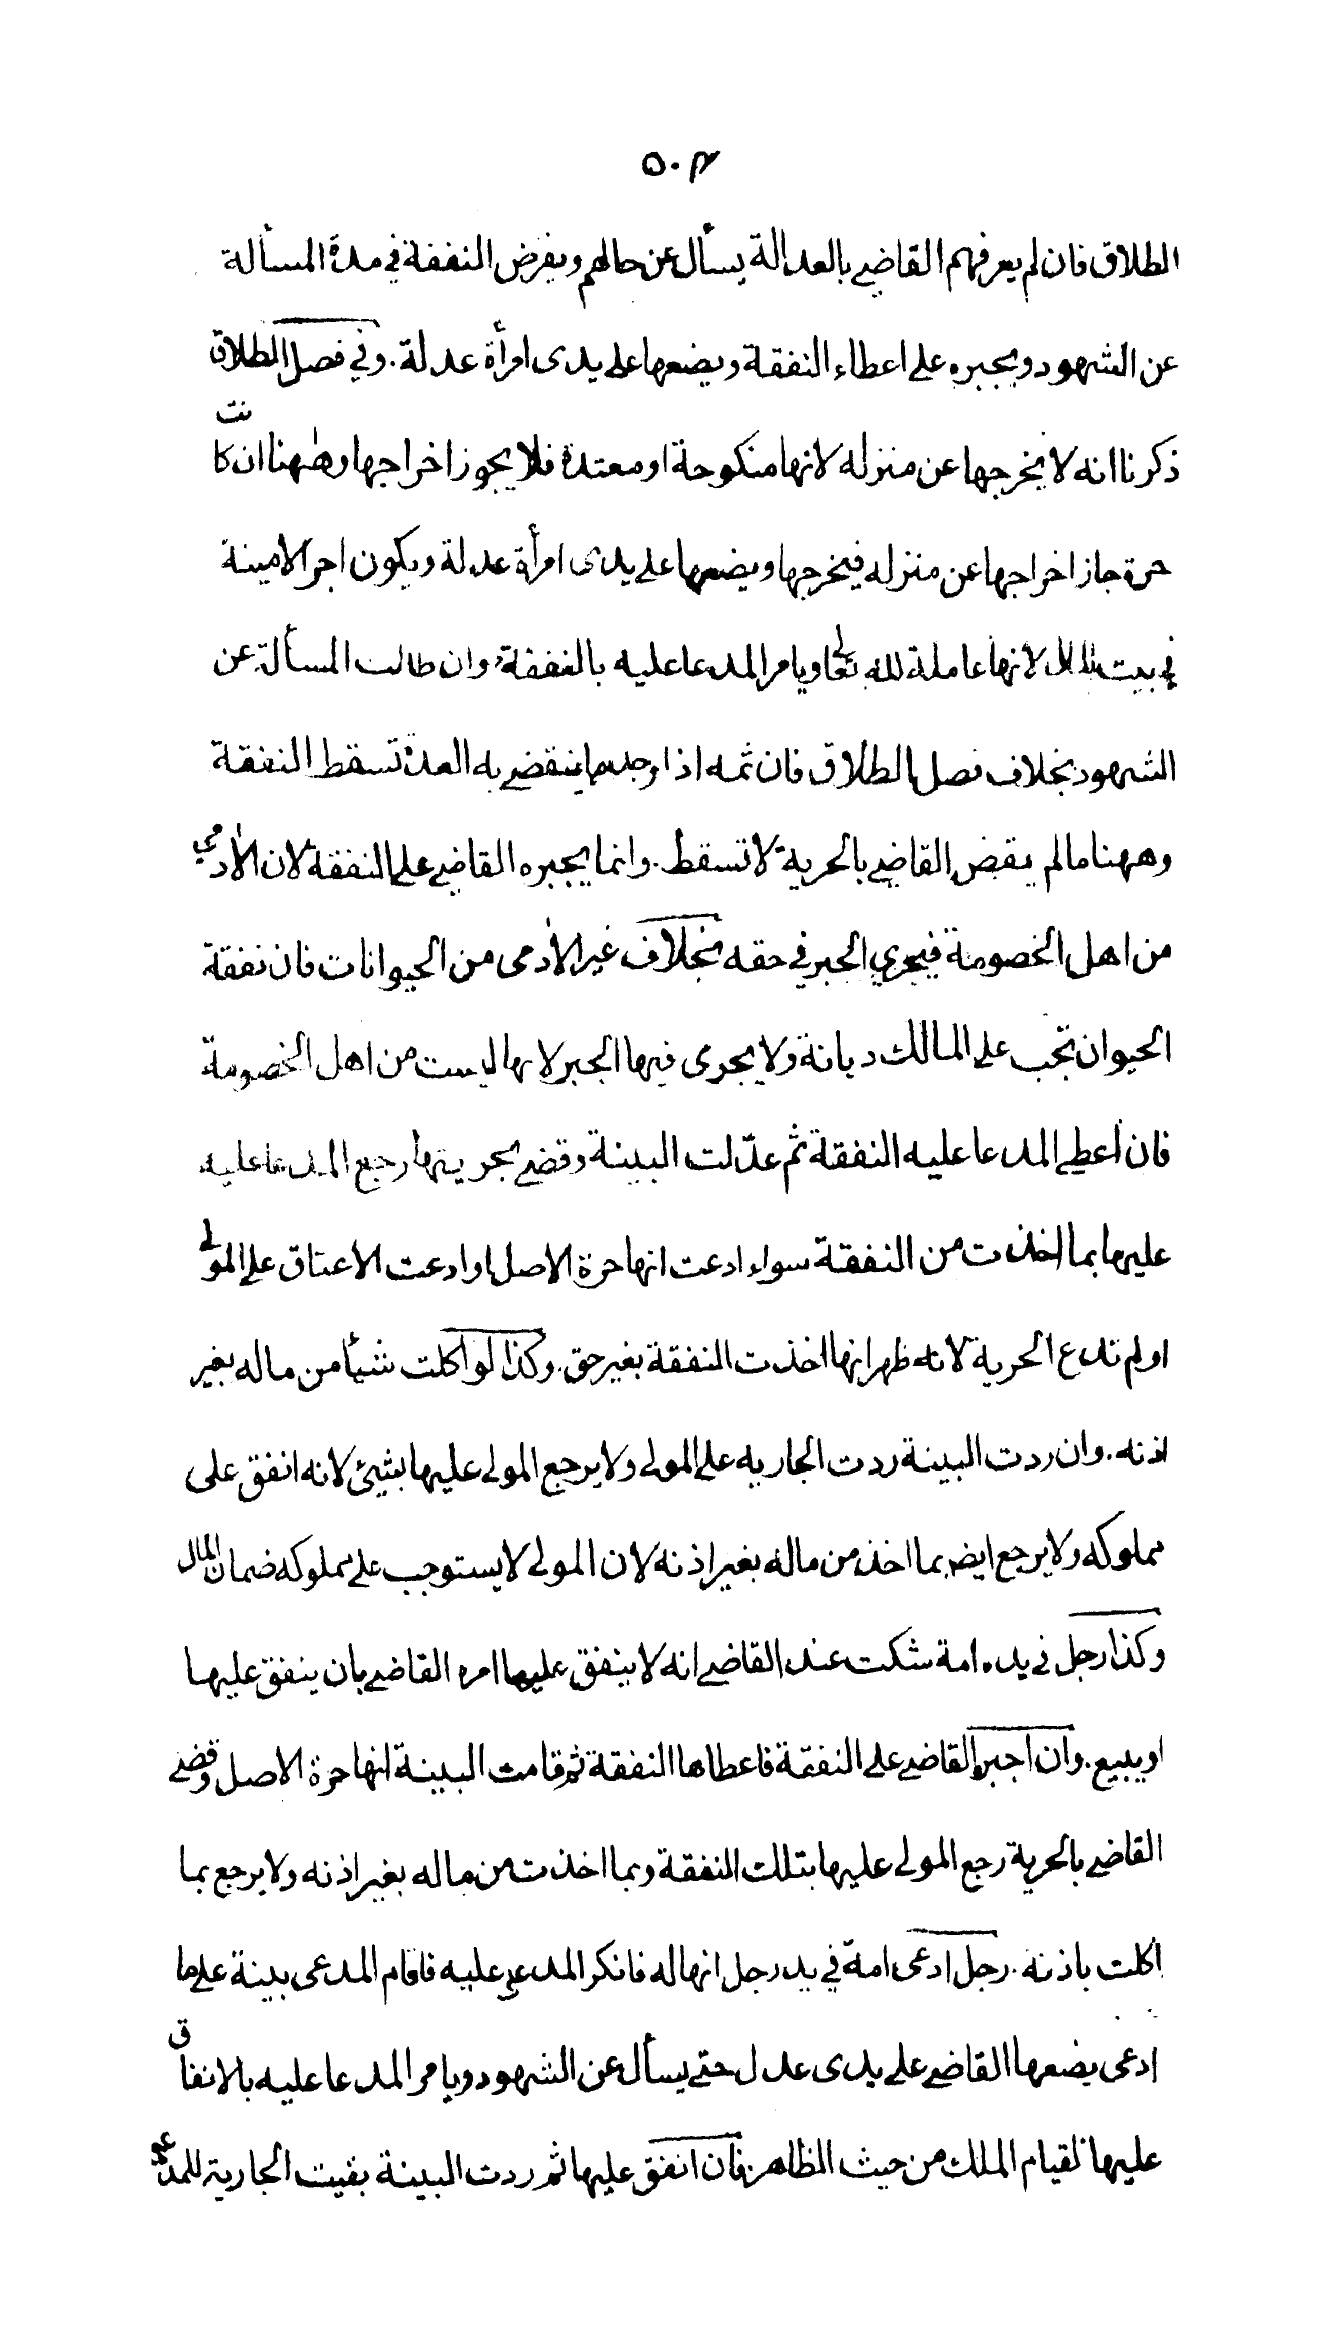 ٥٠٣
الطلاق فان لم يعرفهم القاضي بالعدالة يسأل عن حالهم ويفرض النفقة في مدة المسألة
عن الشهود ويجبره على اعطاء النفقة ويضعها على يدى امرأة عدلة . وفي فصل الطلاق
ذكرنا انه لا يخرجها عن منزله لانها منكوحة او معتدة فلا يجوز اخراجها وههنا ان كانت
حرة جاز اخراجها عن منزله فيخرجها ويضعها على يدى امرأة عدلة ويكون اجر الامينة
في بيت المال لانها عاملة لله تعالى ويامر المدعا عليه بالنفقة وان طالت المسألة عن
الشهود بخلاف فصل الطلاق فان ثمه اذا وجد ما ينقضي به العدة تسقط النفقة
وههنا مالم يقض القاضي بالحرية لا تسقط . وانما يجبره القاضي على النفقة لان الأدمي
من اهل الخصومة فيجري الجبر في حقه بخلاف غير الأدمى من الحيوانات فان نفقة
الحيوان تجب على المالك ديانة ولا يجرى فيها الجبر لانها ليست من اهل الخصومة
فان أعطى المدعا عليه النفقة ثم عدّلت البينة وقضى بحريتها رجع المدعا عليه
عليها بما اخذت من النفقة سواء ادعت انها حرة الاصل او ادعت الاعتاق على المولى
او لم تدع الحرية لانه ظهر انها اخذت النفقة بغير حق . وكذا لو اكلت شيأ من ماله بغير
اذنه . وان ردت البينة ردت الجاريه على المولى ولا يرجع المولى عليها بشيئ لانه انفق على
مملوكه ولا يرجع ايضا بما اخذ من ماله بغير اذنه لان المولى لا يستوجب على مملوكه ضمان المال
وكذا رجل في يده امة شكت عند القاضي انه لا ينفق عليها امره القاضي بان ينفق عليها
او يبيع . وان اجبر القاضي على النفقة فاعطاها النفقة ثم قامت البينة انها حرة الاصل وقضى
القاضي بالحرية رجع المولى عليها بتلك النفقة وبما اخذت من ماله بغير اذنه ولا يرجع بما
اكلت باذنه . رجل ادعى امة في يد رجل انها له فانكر المدعى عليه فاقام المدعى بينة على ما
ادعى يضعها القاضي على يدى عدل حتى يسأل عن الشهود ويامر المدعا عليه بالانفاق
عليها لقيام الملك من حيث الظاهر فان انفق عليها ثم ردت البينة بقيت الجارية للمدعى